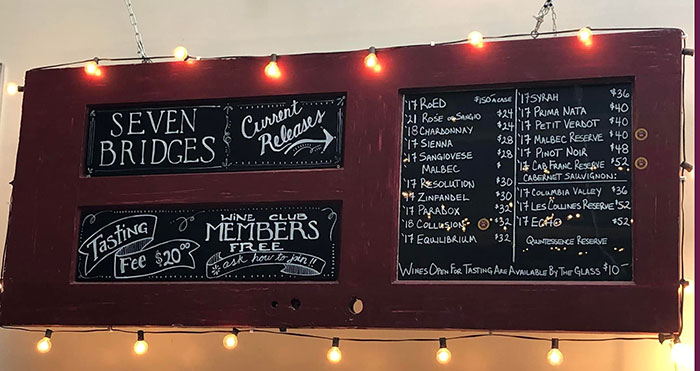 SEVEN
BRIDGES
Current
Releases
Tasting
Fee $20.00
WINE CLUB
MEMBERS
FREE
ask how to join!!
'17 RoED $150 A CASE
'21 ROSE OF SANGIO $24
'18 CHARDONNAY $24
'17 SIENNA $28
'17 SANGIOVESE $28
MALBEC
'17 RESOLUTION $30
'17 ZINFANDEL $30
'17 PARABOX $32
'18 COLLUSION $32
'17 EQUILIBRIUM $32
'17 SYRAH $36
'17 PRIMA NATA $40
'17 PETIT VERDOT $40
'17 MALBEC RESERVE $40
'17 PINOT NOIR $48
'17 CAB FRANC RESERVE $52
CABERNET SAUVIGNON:
'17 COLUMBIA VALLEY $36
'17 LES COLLINES RESERVE $52
'17 $52
QUINTESSENCE RESERVE
WINES OPEN FOR TASTING ARE AVAILABLE BY THE GLASS $10-